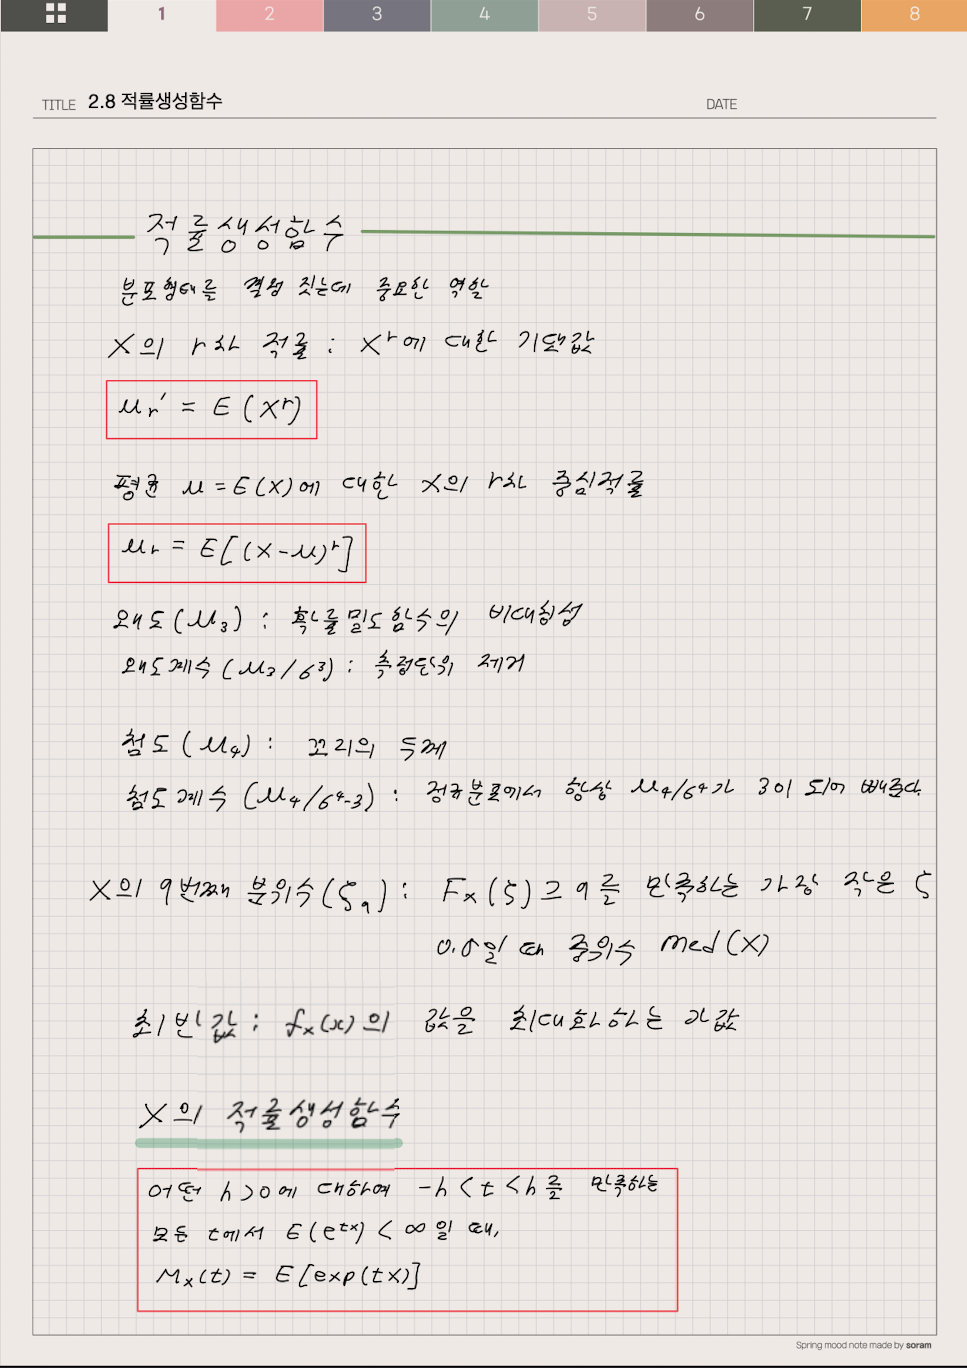 1 2 3 4 5 6 7 8
TITLE 2.8 적률생성함수 DATE
적률생성함수
분포형태를 결정 짓는데 중요한 역할
X의 r차 적률 : X^r에 대한 기댓값
μr' = E(X^r)
평균 μ = E(X)에 대한 X의 r차 중심적률
μr = E[(X-μ)^r]
왜도(μ3) : 확률밀도함수의 비대칭성
왜도계수(μ3/σ^3) : 측정단위 제거
첨도(μ4) : 꼬리의 두께
첨도계수(μ4/σ^4-3) : 정규분포에서 항상 μ4/σ^4가 3이 되어 빼준다.
X의 q번째 분위수(ζq) : Fx(ζ)≥q를 만족하는 가장 작은 ζ
0.5일 때 중위수 med(X)
최빈값 : fx(x)의 값을 최대화하는 x값
X의 적률생성함수
어떤 h>0에 대하여 -h<t<h를 만족하는
모든 t에서 E(e^tx) < ∞일 때,
Mx(t) = E[exp(tX)]
Spring mood note made by soram